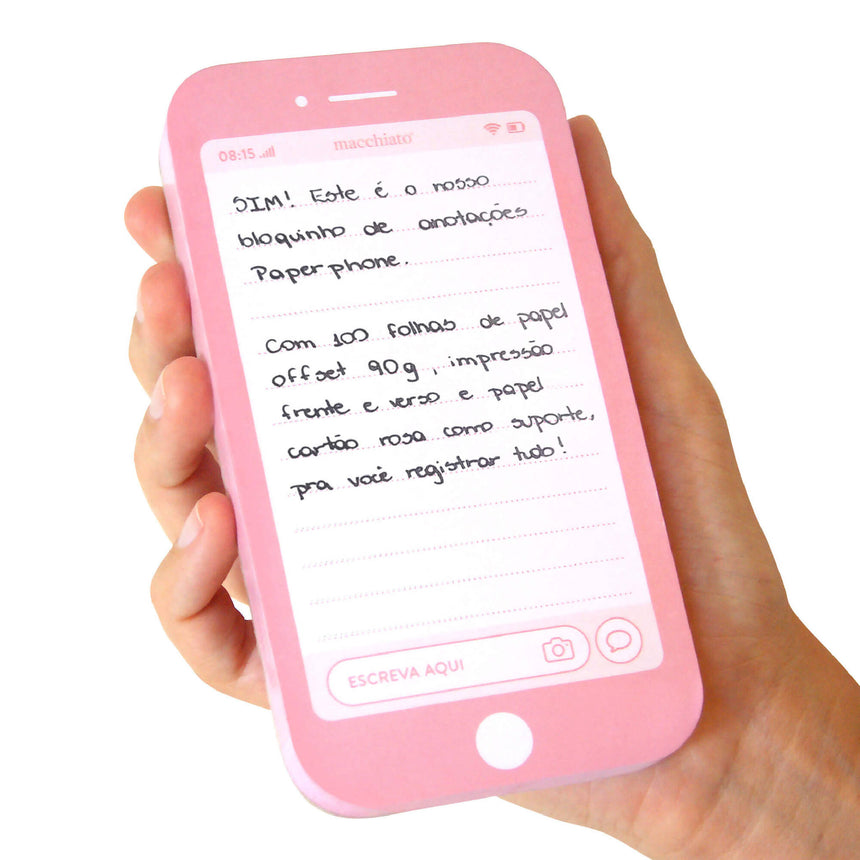 08:15
macchiato®
SIM! Este é o nosso
bloquinho de anotações
Paperphone.
Com 100 folhas de papel
offset 90g, impressão
frente e verso e papel
cartão rosa como suporte,
pra você registrar tudo!
ESCREVA AQUI